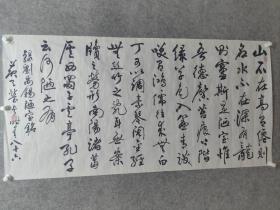 山不在高有僊則
名水不在深有龍
則靈斯是陋室惟
吾德馨苔痕上階
綠草色入簾青談
笑有鴻儒往來無白
丁可以調素琴閱金經
無絲竹之亂耳無案
牘之勞形南陽諸葛
廬西蜀子雲亭孔子
云何陋之有
錄劉禹錫陋室銘
八十六